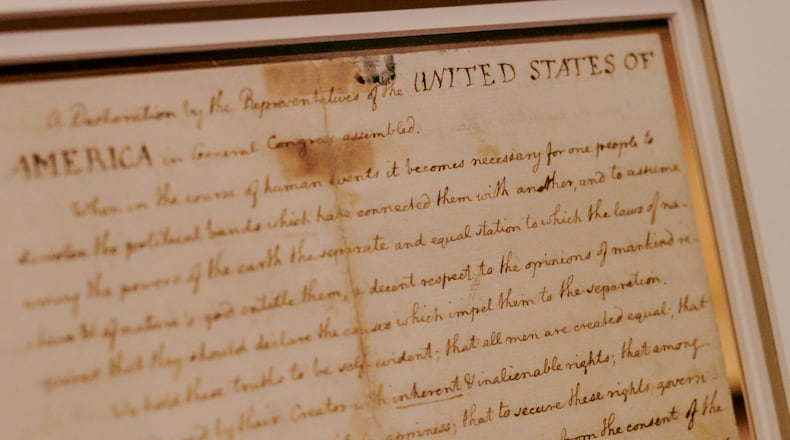 A Declaration by the Representatives of the UNITED STATES OF
AMERICA in General Congress assembled.
When in the course of human events it becomes necessary for one people to
dissolve the political bands which have connected them with another, and to assume
among the powers of the earth the separate and equal station to which the laws of na-
ture & of nature's god entitle them, a decent respect to the opinions of mankind re-
quires that they should declare the causes which impel them to the separation.
We hold these truths to be self evident; that all men are created equal; that
by their Creator with inherent & inalienable rights; that among
happiness; that to secure these rights, govern-
from the consent of the